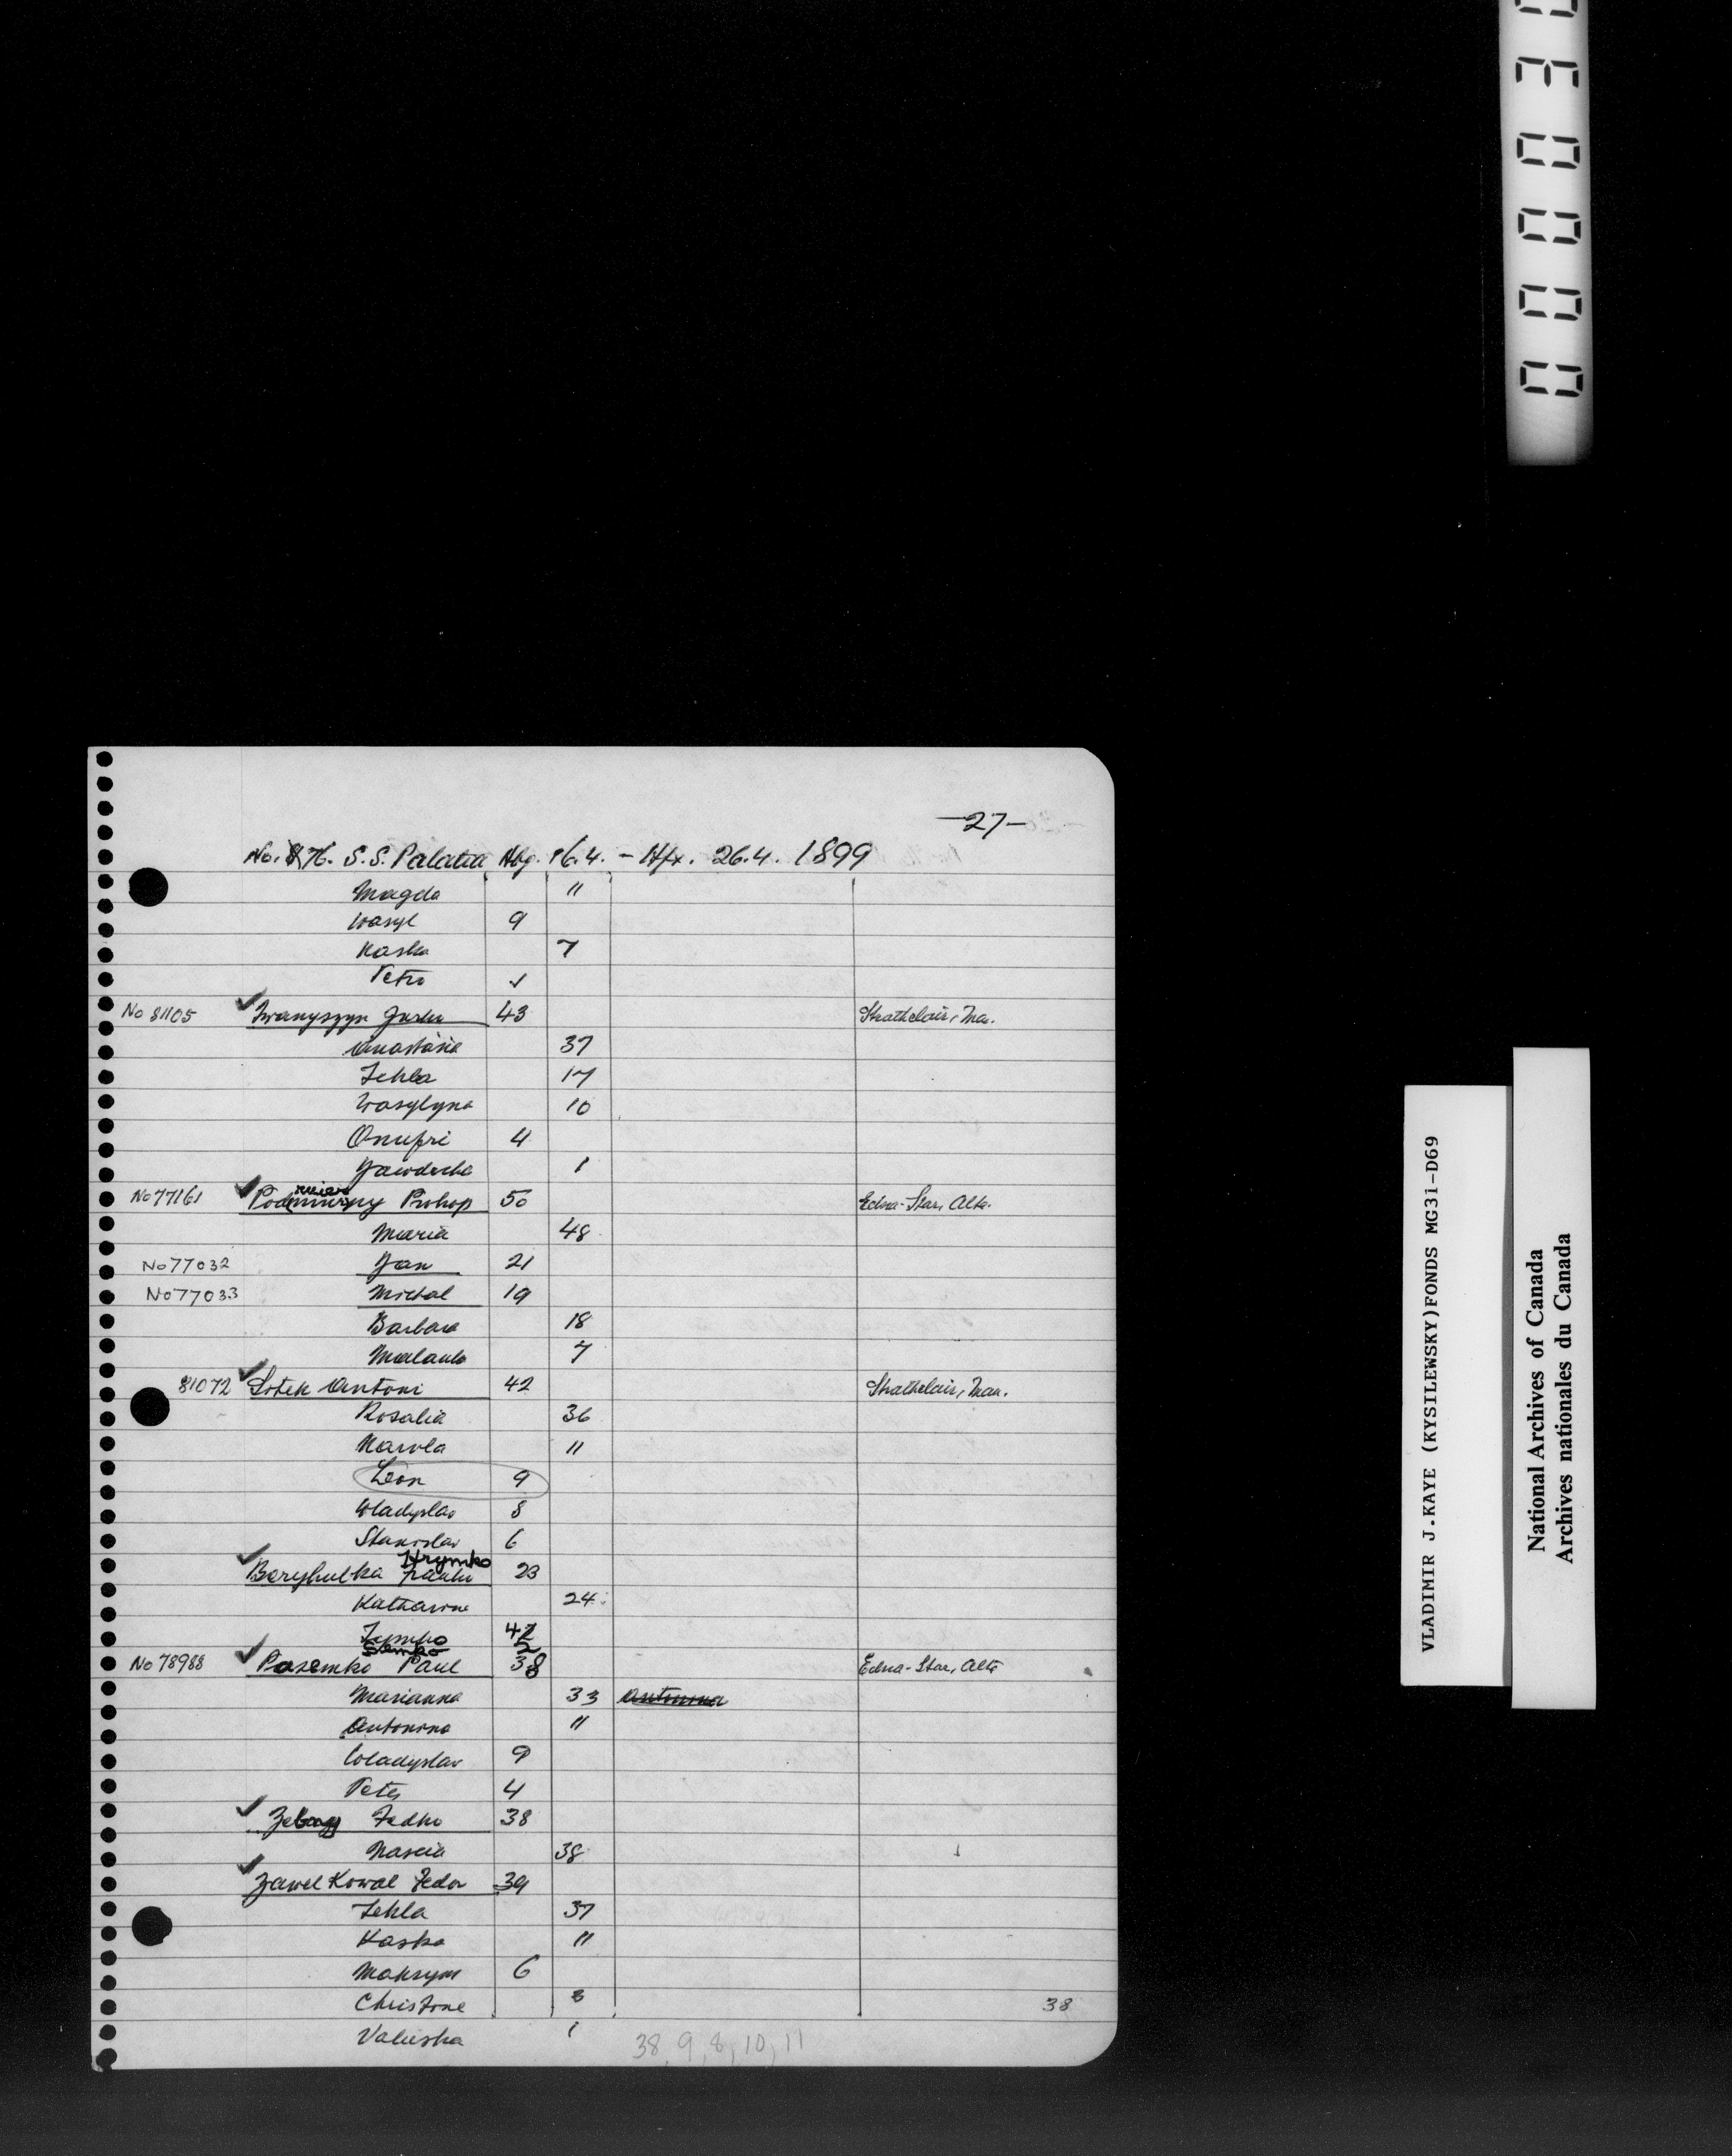 -27-
No. 76. S.S. Palatia Hbg. 16.4. - Hfx. 26.4. 1899
Magda 11
Wasyl 9
Kaska 7
Petro
No 81105 Iwanyszyn 43 Strathclair, Ma.
Anastasia 37
Tekla 17
Wasylyna 10
Onufri 4
Jawdocha 1
No 77161 Prokop 50 Edna-Star, Alta.
Maria 48
No 77032 Jan 21
No 77033 Michal 19
Barbara 18
Malanka 7
81072 Sotek Antoni 42 Strathclair, Man.
Rosalia 36
Karola 11
Leon 9
Wladyslav 8
Stanislav 6
Hrymko
Beryhulka 23
Katharina 24
Semko 2
No 78988 Pasemko Paul 38 Edna-Star, Alta
Marianna 33 Antonina
Antonina 11
Wladyslav 9
Peter 4
Fedko 38
Nascia 38
Zawel Kowal Fedor 39
Tekla 37
Kaska 11
Maksym 6
Christine 3 38
Valuska 1
38, 9, 8, 10, 11
VLADIMIR J.KAYE (KYSILEWSKY)FONDS MG31-D69
National Archives of Canada
Archives nationales du Canada